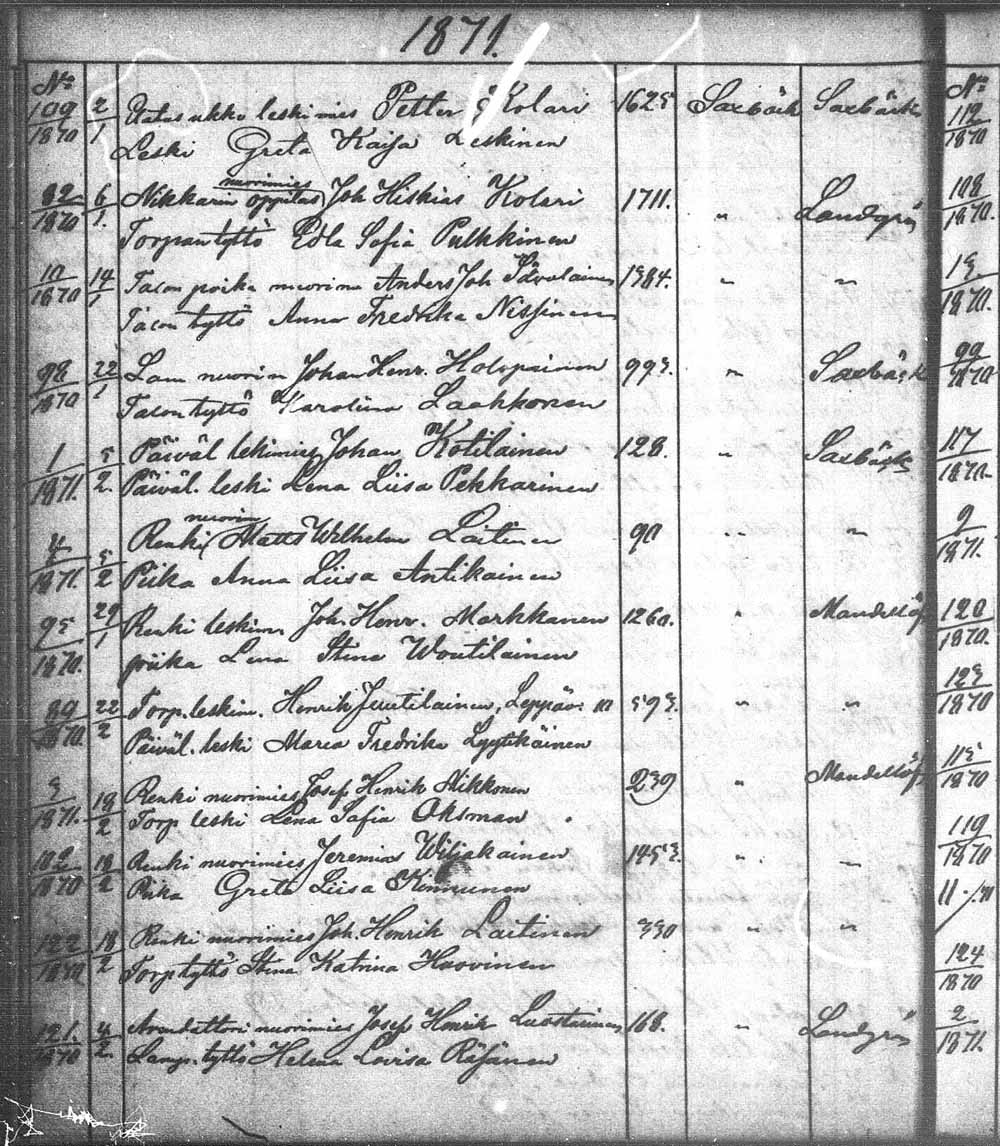 1871.
No No
109/1870 2/1 ukko leskimies Petter Kolari 1625 Saxbäck Saxbäck 112/1870
Leski Greta Kaisa Leskinen
nuorimies
82/1870 6/1. Nikkarin oppilas Joh Hiskias Kolari 1711. " Landgrén 108/1870.
Torpantyttö Edla Sofia Pulkkinen
10/1870 14/1 Talon poika nuorim Anders Joh 1384. " " 13/1870.
Talon tyttö Anna Fredrika Nissinen
98/1870 22/1 nuorim Johan Henr. Holopainen 993. " Saxbäck 99/1870
Talontyttö Karolina Laakkonen
1/1871. 5/2. Päiväl leskimies Johan Kotilainen 128. " Saxbäck 117/1870.
Päiväl. leski Lena Liisa Pekkarinen
nuorim
4/1871. 5/2 Renki Matts Wilhelm Laitinen 90 " " 9/1871.
Piika Anna Liisa Antikainen
95/1870. 29/1 Renki leskim. Joh. Henr. Markkanen 1260. " Mandellöf 120/1870.
piika Lena Stina Woutilainen
89/1870. 22/2 Torp. leskim. Henrik Juutilainen, Leppäv: 593. " " 123/1870
Päiväl. leski Maria Fredrika Lyytikäinen
3/1871. 18/2 Renki nuorimies Josef Henrik Hikkonen 239 " Mandellöf 115/1870
Torp leski Lena Sofia Oksman
102/1870 18/2 Renki nuorimies Jeremias Wiljakainen 1453. " " 119/1870
Piika Greta Liisa Kinnunen 11/71
122/1870 18/2 Renki nuorimies Joh. Henrik Laitinen 330 " " 124/1870
Torp tyttö Stina Katrina Haavinen
121./1870 4/2. Arendattori nuorimies Josef Henrik Luostarinen 168. " Landgrén 2/1871.
Lamp. tyttö Helena Lovisa Räsänen